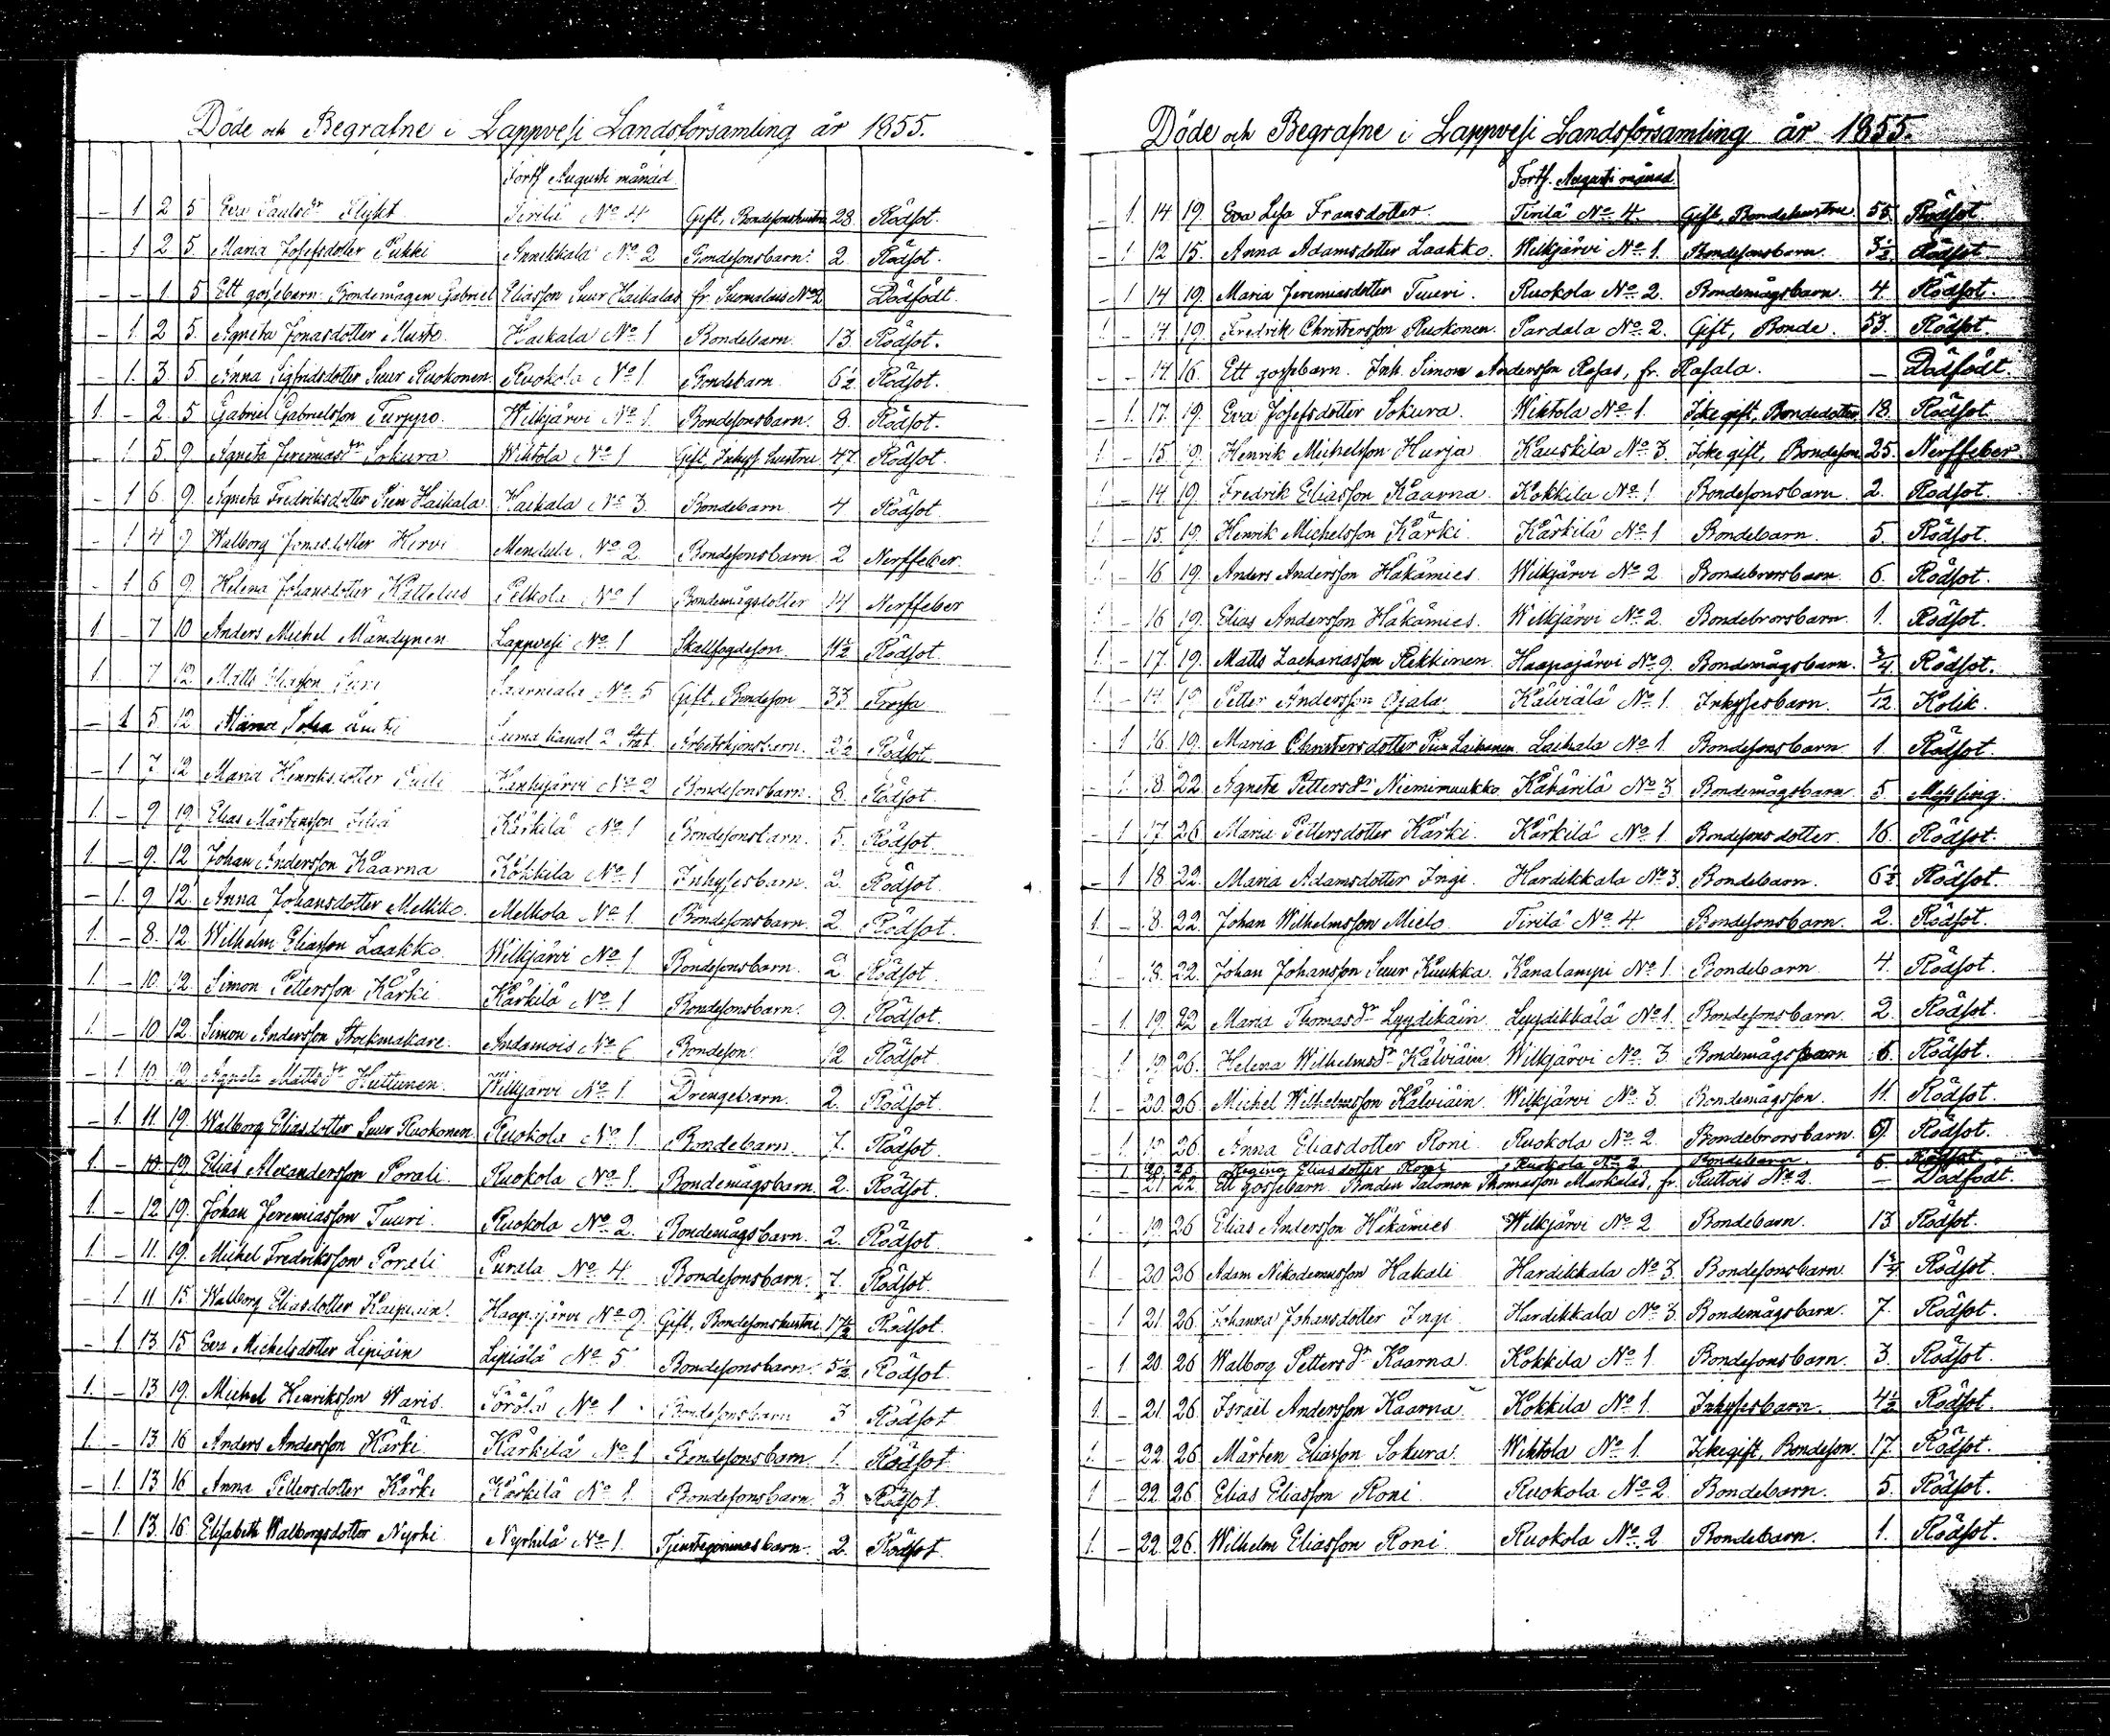 Döde och Begrafne i Lappvesi Landsförsamling år 1855.
Fortf. Augusti månad
- 1 2 5 Eva Paulsdr Flykt Tirilä No 4 Gift, Bondesonshustru 28 Rödsot.
- 1 2 5 Maria Josefsdotter Pukki Annikkala No 2 Bondesonsbarn. 2. Rödsot.
- - 1 5 Ett gossebarn. Bondemågen Gabriel Eliasson Suur Haikalas fr. Suomalais No 2 Dödfödt.
- 1. 2 5. Agneta Jonasdotter Musto Haikala No 1 Bondebarn. 13. Rödsot.
- 1. 3. 5 Anna Sigfridsdotter Suur Ruokonen. Ruokola No 1. Bondebarn 6½ Rödsot.
1. - 2. 5 Gabriel Gabrielsson Turppo. Wilkjärvi No 1. Bondesonsbarn. 8. Rödsot.
- 1. 5 9 Agneta Jeremiasdr Sokura Wihtola No 1 Gift, Inhyss hustru 47. Rödsot.
- 1 6. 9. Agneta Fredriksdotter Pien Haikala Haikala No 3. Bondebarn 4 Rödsot.
- 1 4 9 Walborg Jonasdotter Hirvi No 2 Bondesonsbarn 2 Nerffeber.
- 1 6 9. Helena Johansdotter Kättelus Pelkola No 1 Bondemågsdotter 14 Nerffeber
1 - 7 10 Anders Michel Mändynen Lappvesi No 1 Skallfogdeson. 11½ Rödsot
1. 7 12 Matts Eliasson No 5 Gift, Bondeson 33 Frossa
- 1 5 12 Saima kanal 2 Stat. Arbetskarlsbarn. 2½ Rödsot.
- 1 7 12 Maria Henriksdotter Hanhijärvi No 2 Bondesonsbarn. 8. Rödsot.
1. - 9 19 Elias Mårtensson Kärkilä No 1 Bondesonsbarn. 5. Rödsot.
1. - 9. 12 Johan Andersson Kaarna Kokkila No 1 Inhysesbarn. 2. Rödsot.
- 1. 9 12. Anna Johansdotter Melkko. Melkola No 1. Bondesonsbarn. 2. Rödsot.
1. - 8. 12 Wilhelm Eliasson Laakko Wilkjärvi No 1 Bondesonsbarn. 2 Rödsot.
1. - 10. 12. Simon Pettersson Kärki. Kärkilä No 1 Bondesonsbarn. 9. Rödsot.
1. - 10. 12. Simon Andersson Stockmakare. No 6 Bondeson. 12 Rödsot.
- 1 10 12 Agneta Mattsdr Huttunen. Wilkjärvi No 1. Drengebarn. 2. Rödsot.
- 1. 11. 19. Walborg Eliasdotter Suur Ruokonen Ruokola No 1. Bondebarn. 7. Rödsot.
1. - 10. 19. Elias Alexandersson Porali Ruokola No 1. Bondemågsbarn 2. Rödsot.
1. - 12. 19. Johan Jeremiasson Tuuri. Ruokola No 2. Bondemågsbarn. 2. Rödsot.
1 - 11. 19. Michel Fredriksson Porali Purala No 4. Bondesonsbarn. 7. Rödsot.
- 1 11 15 Walborg Eliasdotter Kaipiain. Haapajärvi No 9. Gift, Bondesonshustru. Rödsot.
- 1 13. 15 Eva Michelsdotter Lipiäin Lipiälä No 5 Bondesonsbarn. 5½ Rödsot.
1. - 13 19. Michel Henriksson Waris. Törölä No 1 Bondesonsbarn 3 Rödsot
1. - 13. 16 Anders Andersson Kärki. Kärkilä No 1 Bondesonsbarn 1. Rödsot
- 1. 13 16 Anna Pettersdotter Kärki Kärkilä No 1. Bondesonsbarn. 3. Rödsot.
- 1. 13. 16. Elisabeth Walborgsdotter Nyrhi Nyrhilä No 1. Tjenstegvinnasbarn. 2. Rödsot.
Döde och Begrafne i Lappvesi Landsförsamling år 1855.
Fortf. Augusti månad
- 1. 14 19. Eva Lisa Fransdotter. Tirilä No 4. Gift, Bondehustru. 55. Rödsot
- 1 12 15. Anna Adamsdotter Laakko. Wilkjärvi No 1. Bondesonsbarn. 3½ Rödsot.
- 1 14 19. Maria Jeremiasdotter Tuuri. Ruokola No 2. Bondemågsbarn. 4. Rödsot.
1. - 14 19. Fredrik Christersson Ruokonen. Pardala No 2. Gift, Bonde. 53. Rödsot.
- - 14. 16. Ett gossebarn. Inh. Simon Andersson Rasas, fr. Rasala. - Dödfödt.
- 1. 17. 19. Eva Josefsdotter Sokura. Wihtola No 1. Icke gift, Bondedotter 18. Rödsot.
1 - 15 19. Henrik Michelsson Hurja Kauskila No 3. Icke gift, Bondeson 25. Nerffeber
1 - 14. 19. Fredrik Eliasson Kaarna. Kokkila No 1 Bondesonsbarn 2. Rödsot.
1. - 15. 19. Henrik Michelsson Kärki. Kärkilä No 1 Bondebarn. 5. Rödsot.
1. - 16 19. Anders Andersson Häkämies Wilkjärvi No 2 Bondebrorsbarn. 6. Rödsot.
1 - 16 19. Elias Andersson Häkämies. Wilkjärvi No 2. Bondebrorsbarn. 1. Rödsot.
1. - 17. 19. Matts Zachariasson Rikkinen. Haapajärvi No 9. Bondemågsbarn. ¾ Rödsot.
1 - 14 19 Petter Andersson Ojala. Kälviälä No 1. Inhysesbarn. 1/12 Kolik
- 1 16 19. Maria Christersdotter Pien Laihanen. Laihala No 1. Bondesonsbarn 1. Rödsot.
- 1. 18. 22 Agneta Pettersdr Niemimuukko Kähärilä No 3 Bondemågsbarn 5. Messling.
- 1 17. 26 Maria Pettersdotter Kärki. Kärkilä No 1 Bondesonsdotter. 16. Rödsot.
- 1 18 22. Maria Adamsdotter Ingi. Hardikkala No 3. Bondebarn. 6½ Rödsot.
1. - 18. 22. Johan Wilhelmsson Mielo Tirilä No 4. Bondesonsbarn. 2. Rödsot.
1 - 18. 22. Johan Johansson Suur Kuukka. Kanalampi No 1. Bondebarn 4. Rödsot.
- 1. 19. 22 Maria Thomasdr Lyydikäin. Lyydikkälä No 1. Bondesonsbarn. 2. Rödsot.
1 19 26. Helena Wilhelmsdr Kälviäin Wilkjärvi No 3 Bondemågsbarn 6. Rödsot.
1. - 20. 26. Michel Wilhelmsson Kälviäin. Wilkjärvi No 3. Bondemågsson. 11. Rödsot.
1. 19 26 Anna Eliasdotter Roni. Ruokola No 2. Bondebrorsbarn. Rödsot.
- 1 20. 26. Regina Eliasdotter Roni Ruokola No 2 Bondebarn. 5. Rödsot
- - 21. 22 Ett gossebarn. Bonden Salomon Thomasson Markalas, fr. Ruttois No 2. - Dödfödt.
1. - 19. 26 Elias Andersson Häkämies Wilkjärvi No 2 Bondebarn. 13 Rödsot.
1. 20 26 Adam Nikodemusson Hakali Hardikkala No 3. Bondesonsbarn 1¾ Rödsot.
1 21. 26. Johanna Johansdotter Ingi Hardikkala No 3. Bondemågsbarn. 7. Rödsot.
- 1 20. 26 Walborg Pettersdr Kaarna. Kokkila No 1. Bondesonsbarn. 3. Rödsot.
1. - 21. 26. Israel Andersson Kaarna. Kokkila No 1. Inhysesbarn. 4½ Rödsot.
1. - 22. 26. Mårten Eliasson Sokura. Wihtola No 1. Ickegift, Bondeson. 17. Rödsot.
1 - 22. 26 Elias Eliasson Roni. Ruokola No 2. Bondebarn. 5. Rödsot.
1. - 22. 26. Wilhelm Eliasson Roni. Ruokola No 2 Bondebarn. 1. Rödsot.